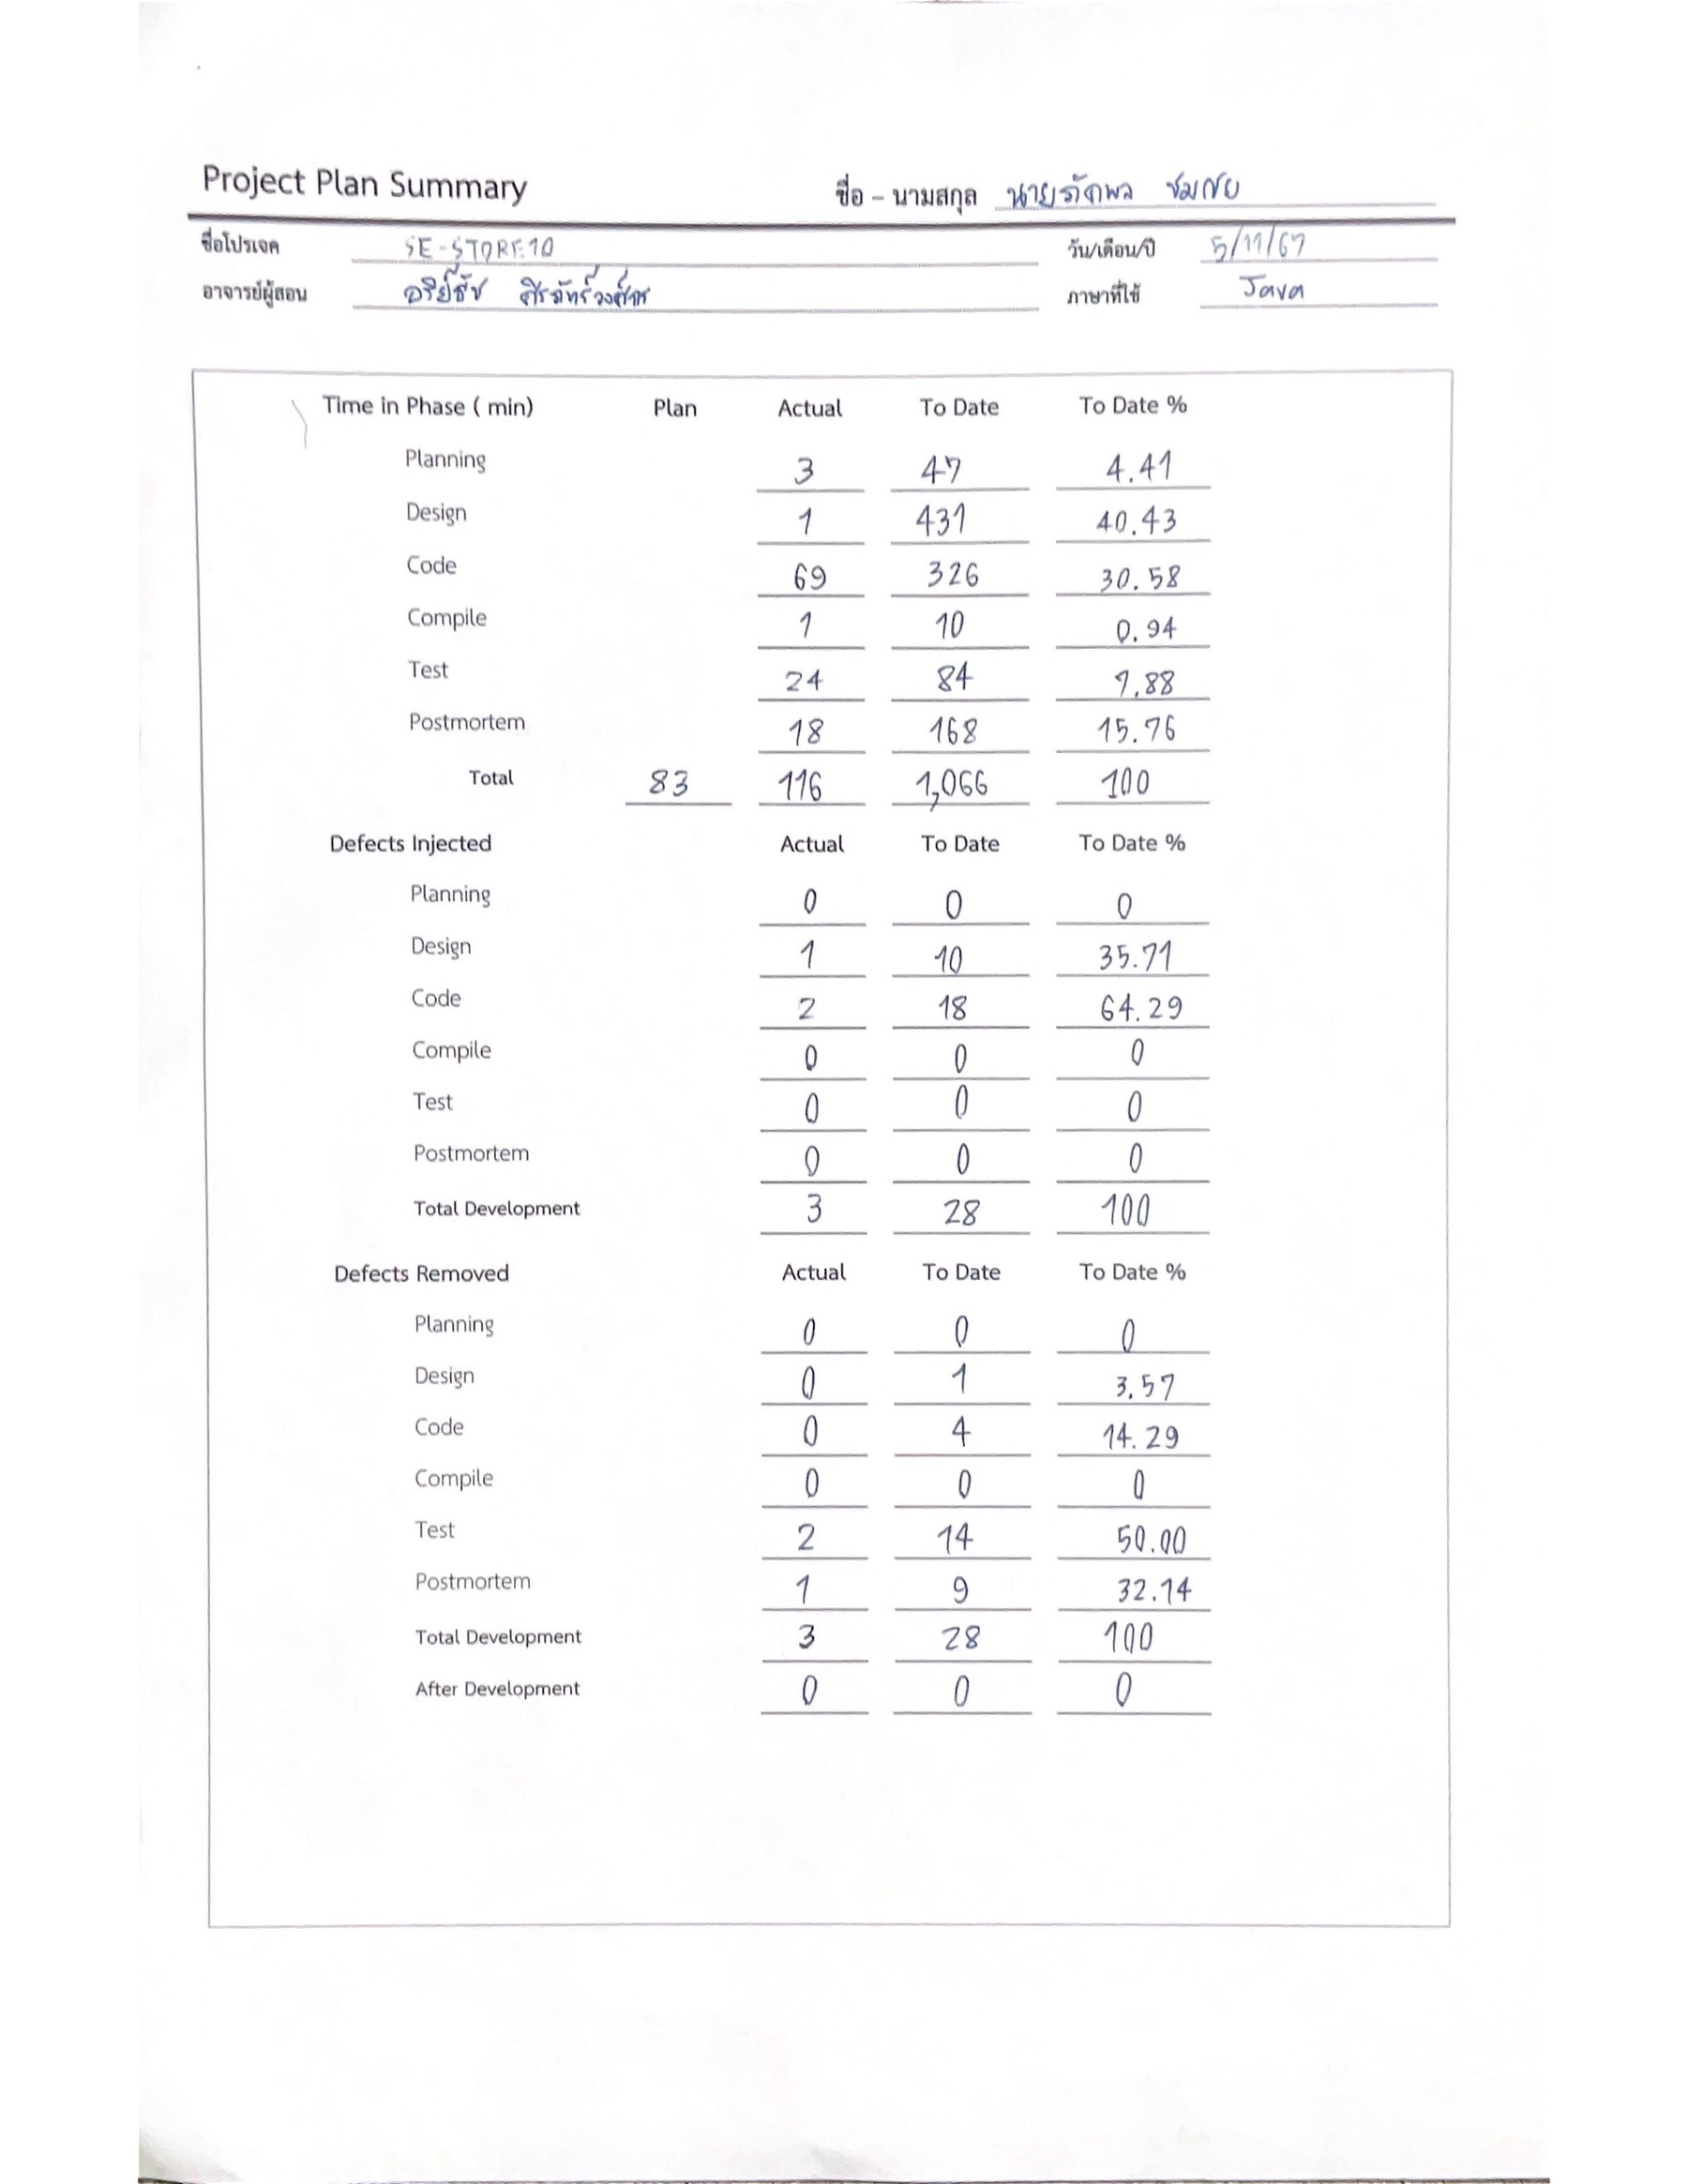 Project Plan Summary ชื่อ – นามสกุล นายภัคพล ชมภัย
ชื่อโปรเจค SE-STORE10 วัน/เดือน/ปี 5/11/67
อาจารย์ผู้สอน ภาษาที่ใช้ Java
Time in Phase ( min) Plan Actual To Date To Date %
Planning 3 47 4.41
Design 1 431 40.43
Code 69 326 30.58
Compile 1 10 0.94
Test 24 84 7.88
Postmortem 18 168 15.76
Total 83 116 1,066 100
Defects Injected Actual To Date To Date %
Planning 0 0 0
Design 1 10 35.71
Code 2 18 64.29
Compile 0 0 0
Test 0 0 0
Postmortem 0 0 0
Total Development 3 28 100
Defects Removed Actual To Date To Date %
Planning 0 0 0
Design 0 1 3.57
Code 0 4 14.29
Compile 0 0 0
Test 2 14 50.00
Postmortem 1 9 32.14
Total Development 3 28 100
After Development 0 0 0